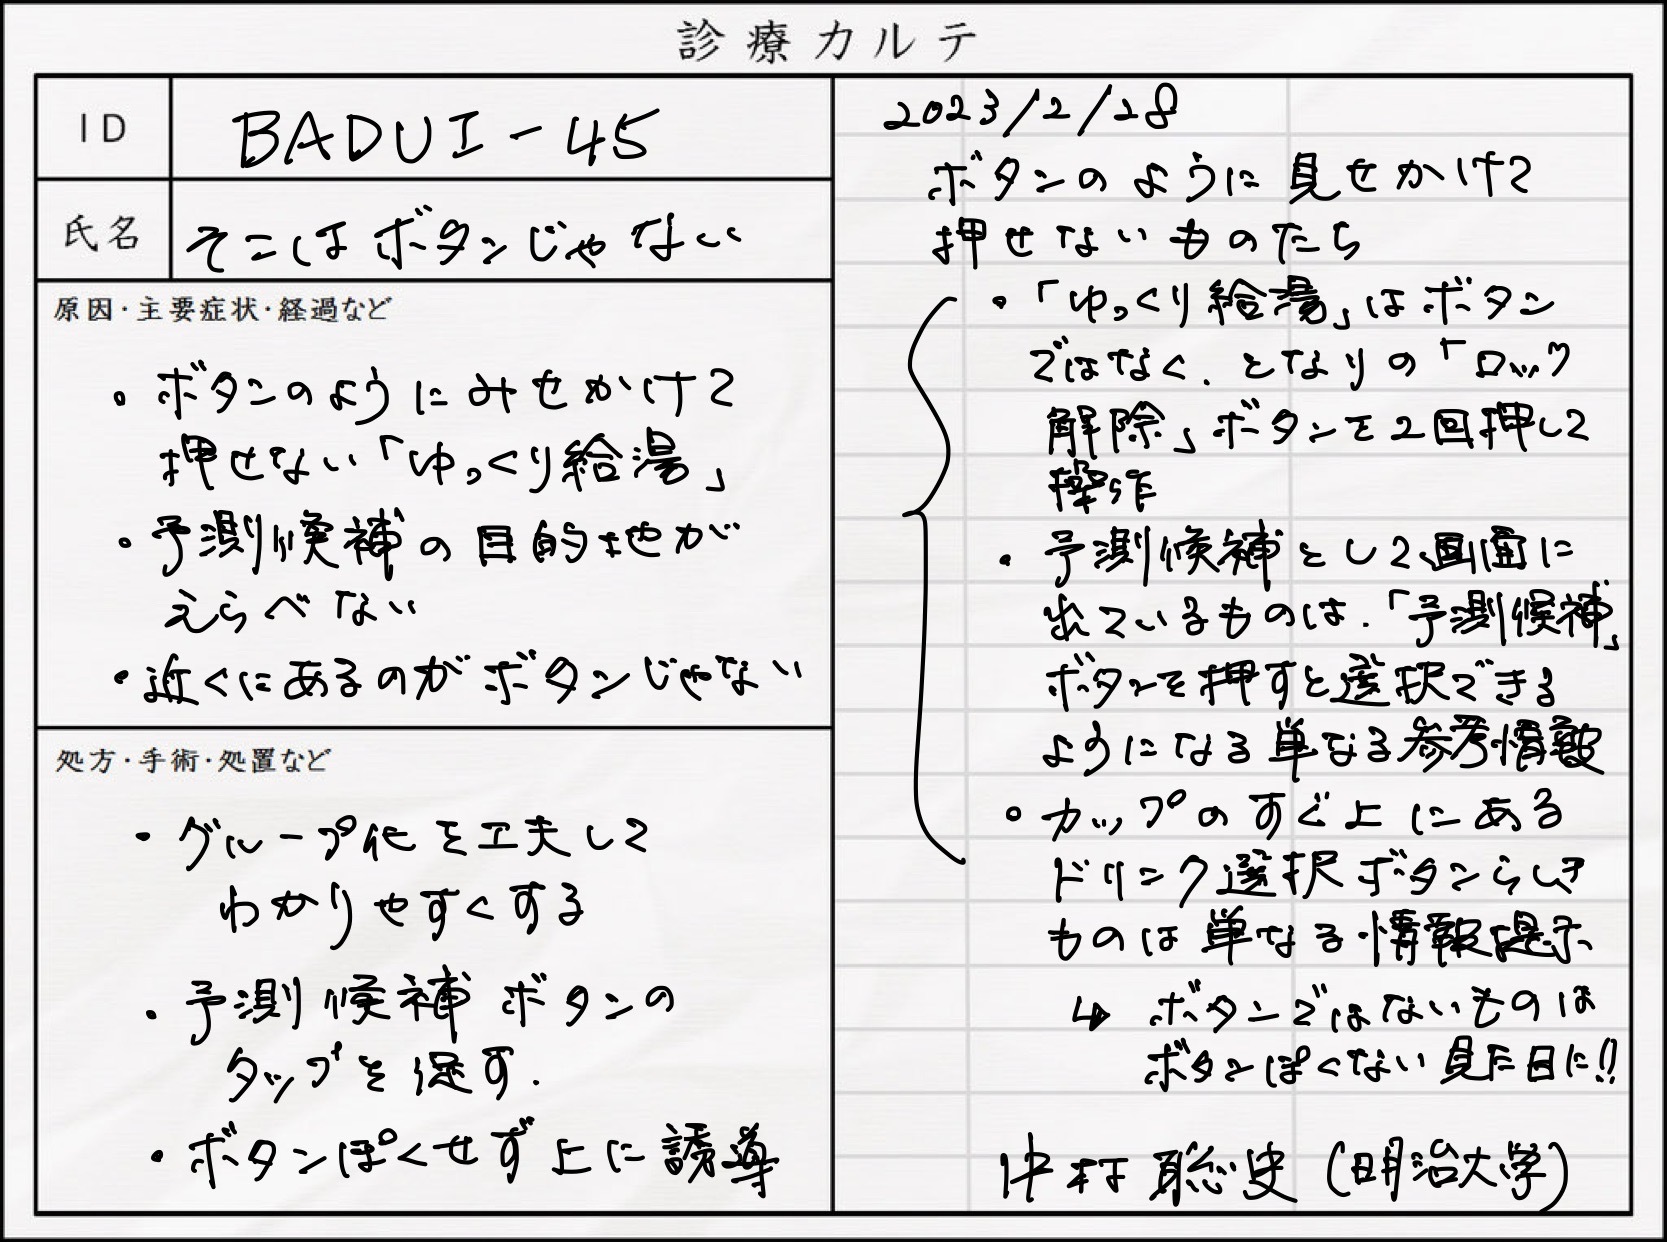 診療カルテ
ID
BADUI-45
氏名
そこはボタンじゃない
原因・主要症状・経過など
・ボタンのようにみせかけて
押せない「ゆっくり給湯」
・予測候補の目的地が
えらべない
・近くにあるのがボタンじゃない
処方・手術・処置など
・グループ化を工夫して
わかりやすくする
・予測候補ボタンの
タップを促す.
・ボタンぽくせず上に誘導
2023/2/28
ボタンのように見せかけて
押せないものたち
・「ゆっくり給湯」はボタン
ではなく、となりの「ロック
解除」ボタンを2回押して
操作
・予測候補として画面に
出ているものは、「予測候補」
ボタンを押すと選択できる
ようになる単なる参考情報
・カップのすぐ上にある
ドリンク選択ボタンらしき
ものは単なる情報提示
↳ ボタンではないものは
ボタンぽくない見た目に!!
中村聡史(明治大学)